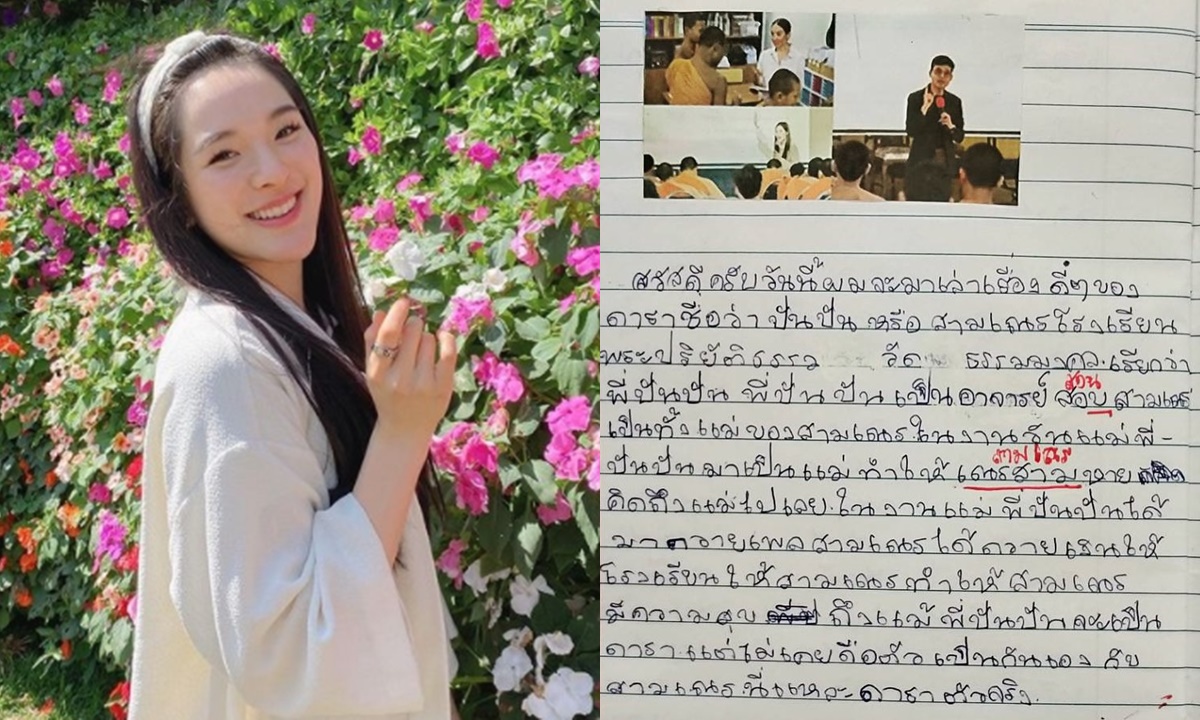 สวัสดีครับวันนี้ผมจะมาเล่าเรื่อง ดีๆของ
ดาราชือว่า ปันปัน หรือ สามเณรโรงเรียน
พระปริยัติธรรม วัด ธรรมมงคล.เรียกว่า
พี่ปันปัน พี่ปัน ปัน เป็น อาจารย์ สอบ สามเณร
สอน
เป็นทั้งแม่ของสามเณร.ในงานวันแม่พี่-
ปันปันมาเป็นแม่ ทำให้ เณรสาม หาย
สามเณร
คิดถึงแม่ไปเลย.ใน งานแม่ พี่ปันปันได้
มา ถวายเพลสามเณร ได้ ถวาย เงินให้
โรงเรียน ให้ สามเณร ทำให้ สามเณร
มีความสุข ถึงแม้ พี่ปันปัน จะเป็น
ดารา แต่ไม่เคยถือตัว เป็นกันเอง กับ
สามเณร นี่แหละ ดารา ตัวจริง.